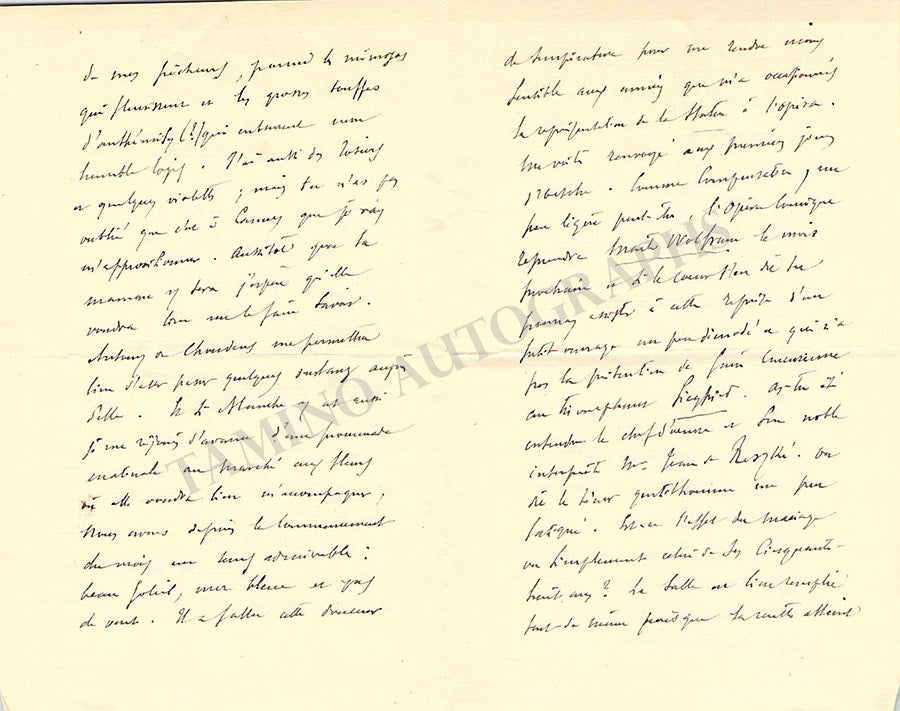 de mes pêcheurs, parmi les mimosas
qui fleurissent et les grosses touffes
d'anthémis (?) qui entourent mon
humble logis. J'ai aussi des rosiers
et quelques violettes; mais tu n'as pas
oublié que c'est à Cannes que je vais
m'approvisionner. Aussitôt que ta
maman y sera j'espère qu'elle
voudra bien me le faire savoir.
Antony de Choudens me permettra
bien d'aller passer quelques instants auprès
d'elle. Si Blanche y est aussi
je me réjouis d'avance d'une promenade
matinale au marché aux fleurs
où elle voudra bien m'accompagner,
Nous avons depuis le commencement
du mois un temps admirable:
beau soleil, mer bleue et pas
de vent. Il a fallu cette douceur
de température pour me rendre moins
sensible aux ennuis que m'a occasionnés
la représentation de la Statue à l'opéra.
Me voilà renvoyé aux premiers jours
d'octobre. Comme compensation, une
peu légère peut-être, l'Opéra Comique
reprendra Maître Wolfram le mois
prochain et si le cœur t'en dit tu
pourras assister à cette reprise d'un
petit ouvrage un peu démodé et qui n'a
pas la prétention de faire concurrence
au triomphant Siegfried. As-tu été
entendre le chef d'œuvre et son noble
interprète Mr Jean de Reszké. On
dit le ténor gentilhomme un peu
fatigué. Est-ce l'effet du mariage
ou simplement celui de ses cinquante-
huit ans? La salle est bien remplie
tout de même puisque la recette atteint
TAMINO AUTOGRAPHS